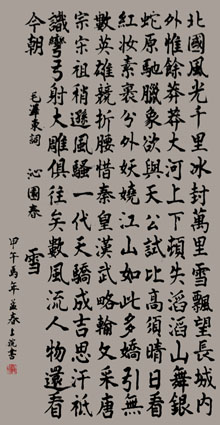 北國風光千里冰封萬里雪飄望長城內
外惟餘莽莽大河上下頓失滔滔山舞銀
蛇原馳臘象欲與天公試比高須晴日看
紅妝素裹分外妖嬈江山如此多嬌引無
數英雄競折腰惜秦皇漢武略輸文采唐
宗宋祖稍遜風騷一代天驕成吉思汗祗
識彎弓射大雕俱往矣數風流人物還看
今朝 毛澤東詞 沁園春 雪
甲午馬年孟春書